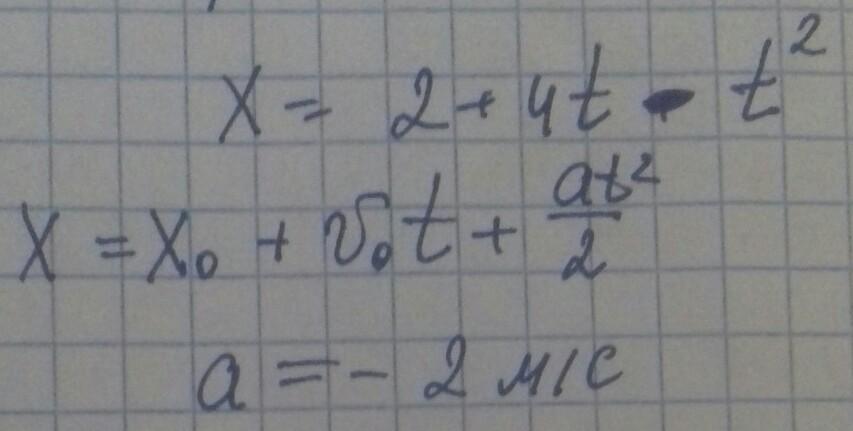 x = 2 + 4t - t²
x = x₀ + v₀t + at²/2
a = - 2 м/с